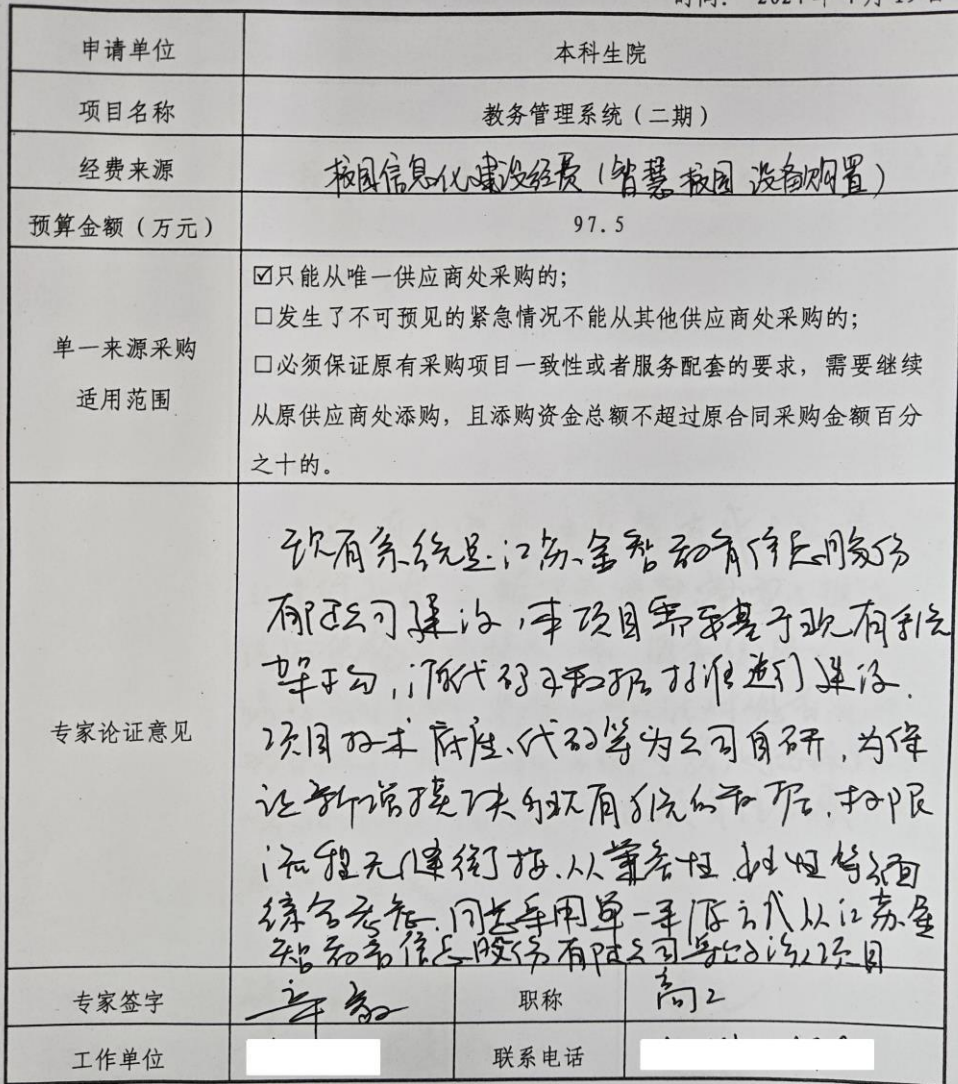 申请单位 本科生院
项目名称 教务管理系统（二期）
经费来源 校园信息化建设经费（智慧校园 设备购置）
预算金额（万元） 97.5
单一来源采购
适用范围
☑只能从唯一供应商处采购的；
□发生了不可预见的紧急情况不能从其他供应商处采购的；
□必须保证原有采购项目一致性或者服务配套的要求，需要继续
从原供应商处添购，且添购资金总额不超过原合同采购金额百分
之十的。
专家论证意见
现有系统是江苏金智教育信息股份
有限公司建设，本项目需要基于现有系统
架构，源代码及数据标准进行建设，
项目技术底座、代码等为公司自研，为保
证新增模块和现有系统的数据、权限
流程无缝衔接，从兼容性、性等方面
综合考虑，同意采用单一来源方式从江苏金
智教育信息股份有限公司采购该项目
专家签字
职称 高工
工作单位
联系电话